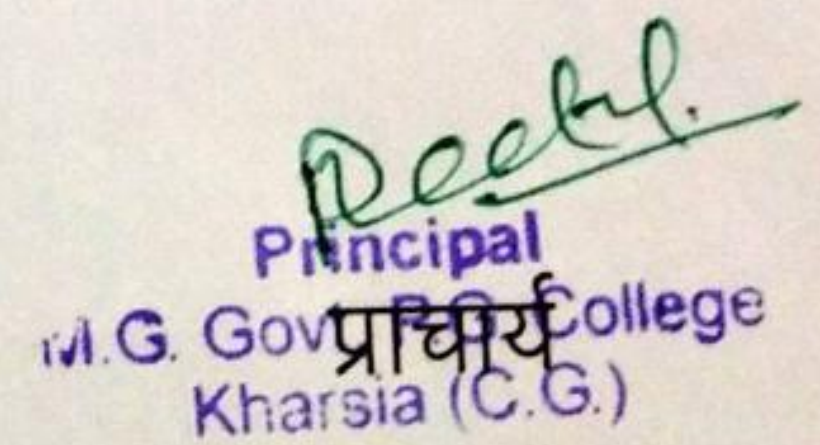 Principal
M.G. Govt. P.G. College
प्राचार्य
Kharsia (C.G.)